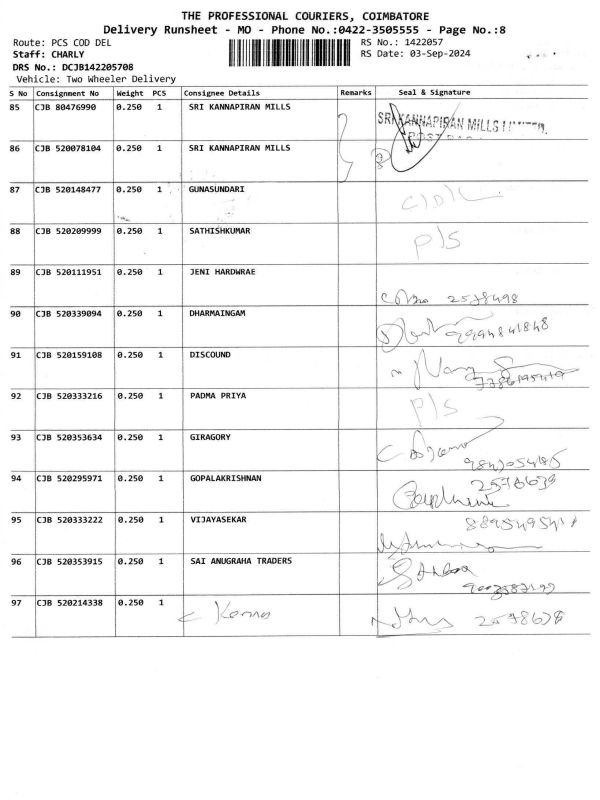 THE PROFESSIONAL COURIERS, COIMBATORE
Delivery Runsheet - MO - Phone No.:0422-3505555 - Page No.:8
Route: PCS COD DEL RS No.: 1422057
Staff: CHARLY RS Date: 03-Sep-2024
DRS No.: DCJB142205708
Vehicle: Two Wheeler Delivery
S No Consignment No Weight PCS Consignee Details Remarks Seal & Signature
85 CJB 80476990 0.250 1 SRI KANNAPIRAN MILLS
SRI KANNAPIRAN MILLS LIMITED.
86 CJB 520078104 0.250 1 SRI KANNAPIRAN MILLS
87 CJB 520148477 0.250 1 GUNASUNDARI
88 CJB 520209999 0.250 1 SATHISHKUMAR P/S
89 CJB 520111951 0.250 1 JENI HARDWRAE
2578498
90 CJB 520339094 0.250 1 DHARMAINGAM
9994841848
91 CJB 520159108 0.250 1 DISCOUND
92 CJB 520333216 0.250 1 PADMA PRIYA P/S
93 CJB 520353634 0.250 1 GIRAGORY
94 CJB 520295971 0.250 1 GOPALAKRISHNAN
95 CJB 520333222 0.250 1 VIJAYASEKAR
96 CJB 520353915 0.250 1 SAI ANUGRAHA TRADERS
97 CJB 520214338 0.250 1